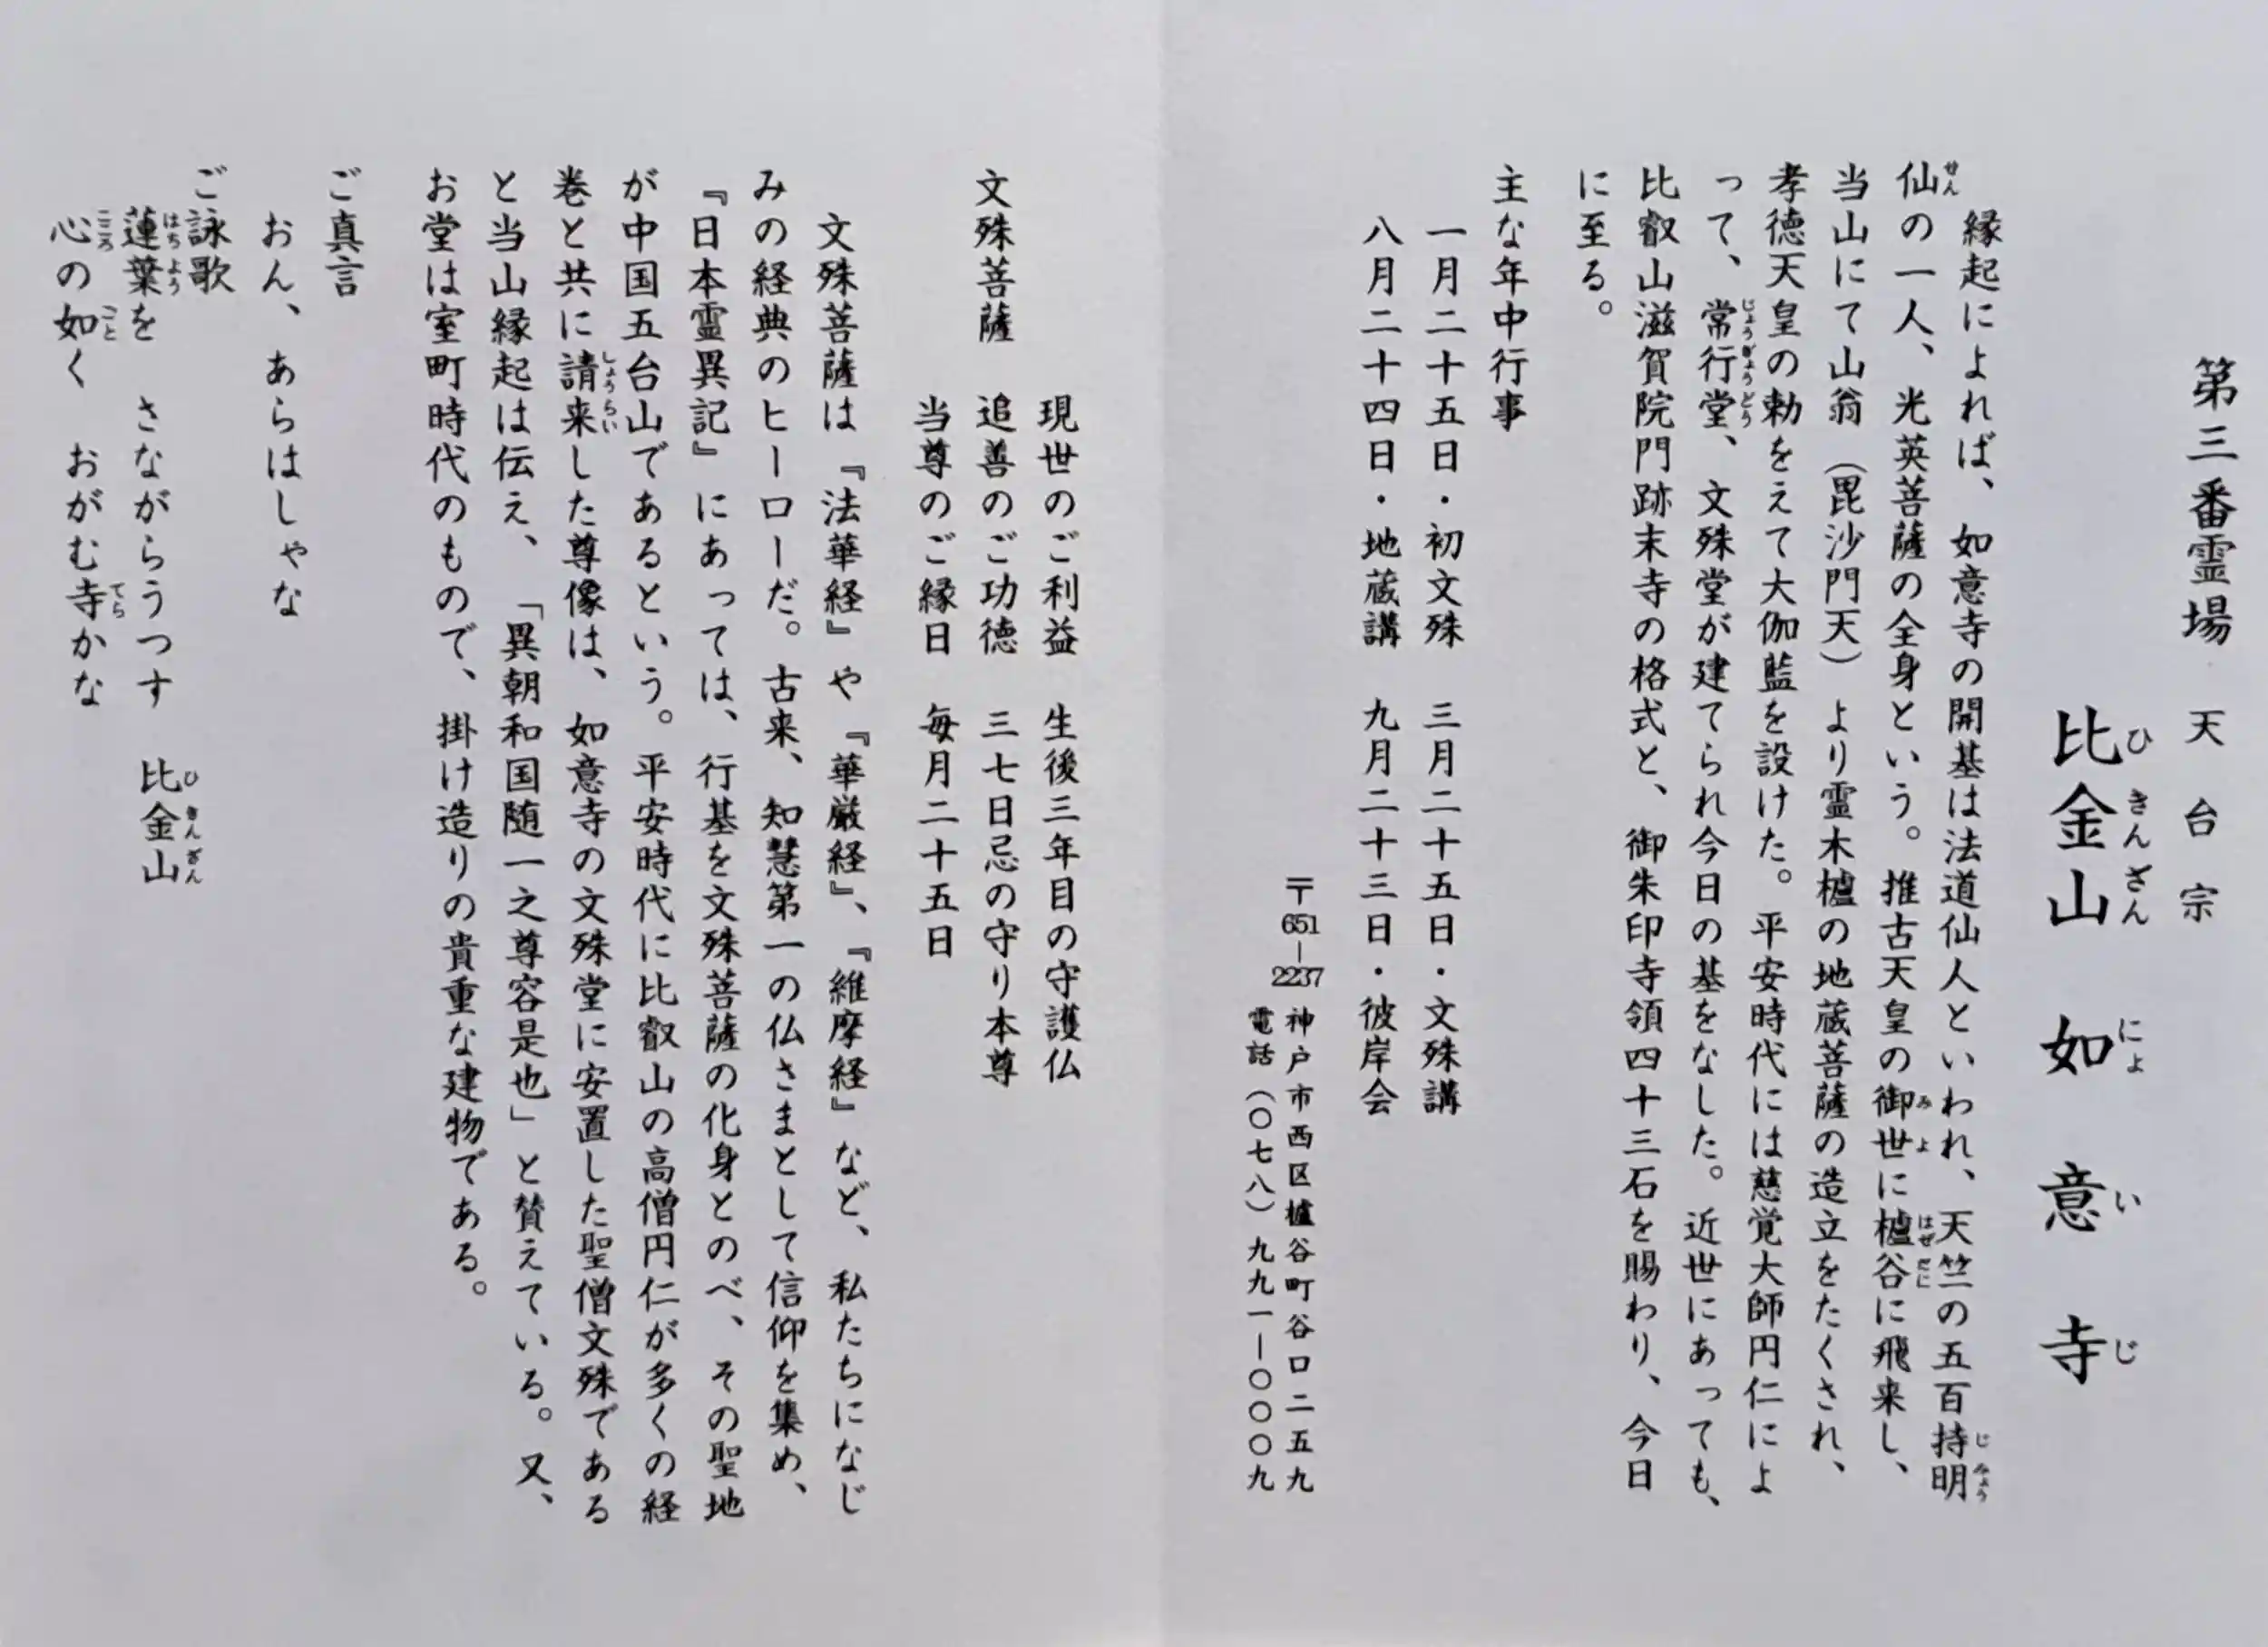 第三番霊場 天台宗
比金山 如意寺
ひきんざん にょいじ
縁起によれば、如意寺の開基は法道仙人といわれ、天竺の五百持明
じみょう
仙の一人、光英菩薩の全身という。推古天皇の御世に櫨谷に飛来し、
せん みよ はぜたに
当山にて山翁(毘沙門天)より霊木櫨の地蔵菩薩の造立をたくされ、
孝徳天皇の勅をえて大伽藍を設けた。平安時代には慈覚大師円仁によ
って、常行堂、文殊堂が建てられ今日の基をなした。近世にあっても、
じょうぎょうどう
比叡山滋賀院門跡末寺の格式と、御朱印寺領四十三石を賜わり、今日
に至る。
主な年中行事
一月二十五日・初文殊 三月二十五日・文殊講
八月二十四日・地蔵講 九月二十三日・彼岸会
〒651-2237 神戸市西区櫨谷町谷口二五九
電話(〇七八)九九一-〇〇〇九
現世のご利益 生後三年目の守護仏
文殊菩薩 追善のご功徳 三七日忌の守り本尊
当尊のご縁日 毎月二十五日
文殊菩薩は『法華経』や『華厳経』、『維摩経』など、私たちになじ
みの経典のヒーローだ。古来、知慧第一の仏さまとして信仰を集め、
『日本霊異記』にあっては、行基を文殊菩薩の化身とのべ、その聖地
が中国五台山であるという。平安時代に比叡山の高僧円仁が多くの経
巻と共に請来した尊像は、如意寺の文殊堂に安置した聖僧文殊である
しょうらい
と当山縁起は伝え、「異朝和国随一之尊容是也」と賛えている。又、
お堂は室町時代のもので、掛け造りの貴重な建物である。
ご真言
おん、あらはしゃな
ご詠歌
蓮葉を さながらうつす 比金山
はちよう ひきんざん
心の如く おがむ寺かな
こころ ごと てら